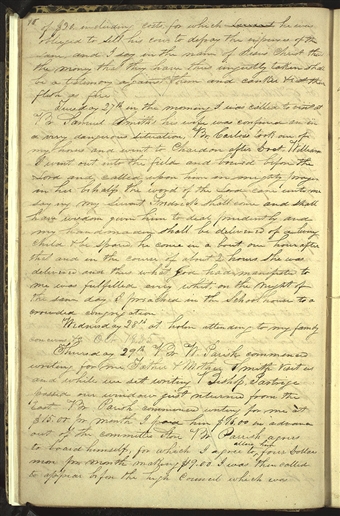 18
of $30 including costs, for which he was
obliged to sell his cow to defray the expenses of the
same and I say in the name of Jesus Christ that
the money that they have thus unjustly taken shall
be a testimony against them and canker & eat their
flesh as fire
Tuesday 27th in the morning I was called to visit at
Br Samuel Smiths his wife was confined &c in
a very dangerous situation, Br Carlos took one of
my horses and went to Chardon after Doct. Williams
I went out into the field and bowed before the
Lord and called upon him in mighty prayer
in her behalf the word of the Lord came unto me
saying my Servant Fredrick shall come and shall
have wisdom given him to deal prudently and
my handmaden shall be delivered of a living
child & be spared he come in about one hour after
that and in the course of about 2 hours she was
delivered and thus what God had manifested to
me was fulfilled every whit. on the night of
the same day I preached in the School house to a
crowded congregation
Wednesday 28th at home attending to my family
concerns &c Oct 1835
Thursday 29th Br W. Parish commenced
writing for me Father & Mother Smith visit us
and while we set writing Bishop Partrige
passed our window just returned from the
East. Br Parish commenced writing for me at
$15.00 pr month I paid him $16.00 in advance
out of the committee Store Br Parrish agrees
to board himself, for which I agree to allow him four Dollars
more pr month making $19.00. I was then called
to appear before the high Council which was